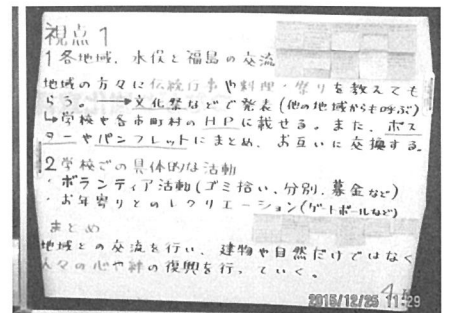 視点1
1 各地域、水俣と福島の交流
地域の方々に伝統行事や料理・祭りを教えても
らう。→文化祭などで発表(他の地域からも呼ぶ)
↳学校や各市町村のHPに載せる。また、ポス
ターやパンフレットにまとめ、お互いに交換する。
2 学校での具体的な活動
・ボランティア活動(ゴミ拾い、分別、募金など)
・お年寄りとのレクリエーション(ゲートボールなど)
まとめ
地域との交流を行い、建物や自然だけではなく
人々の心や絆の復興を行っていく。
2015/12/25 11:29